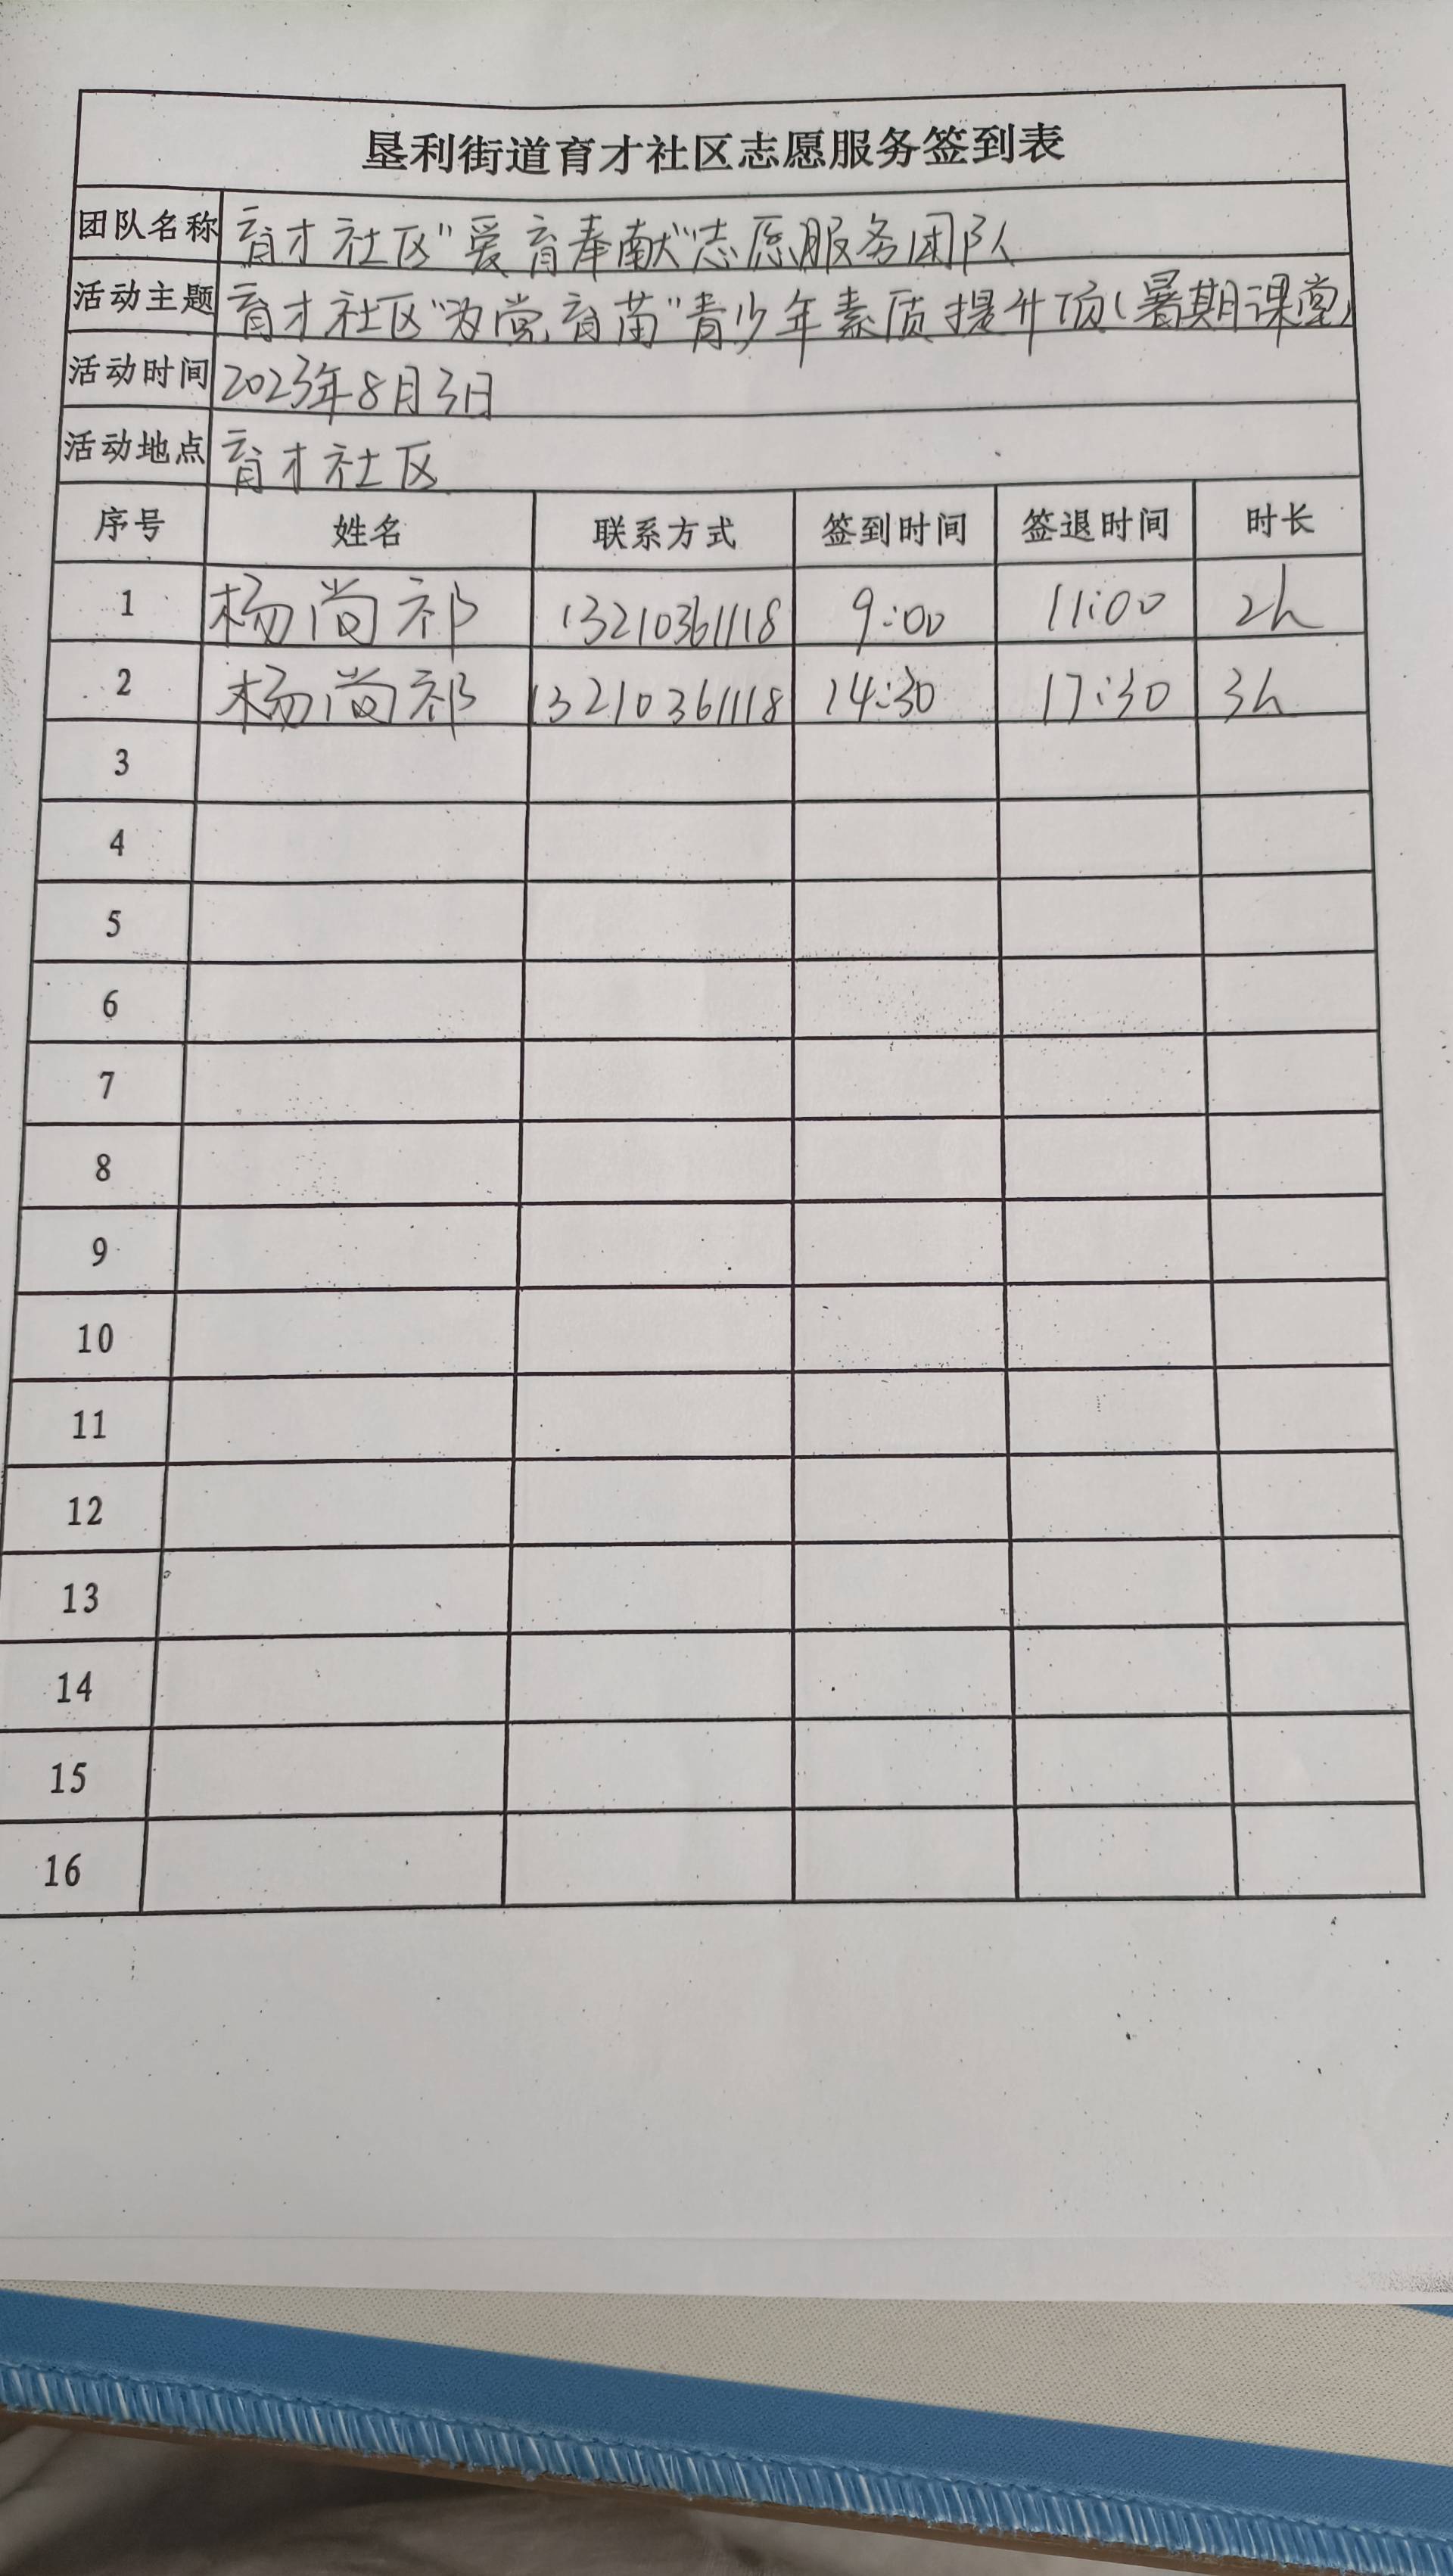 垦利街道育才社区志愿服务签到表
团队名称 育才社区“爱育奉献”志愿服务团队
活动主题 育才社区“为党育苗”青少年素质提升项(暑期课堂)
活动时间 2023年8月3日
活动地点 育才社区
序号 姓名 联系方式 签到时间 签退时间 时长
1 杨尚祁 13210361118 9:00 11:00 2h
2 杨尚祁 13210361118 14:30 17:30 3h
3
4
5
6
7
8
9
10
11
12
13
14
15
16